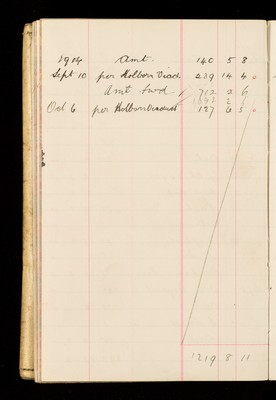 1914 Amt. 140 5 8
Sept 10 per Holborn Viad 239 14 4
Amt Fwd 712 2 6
Oct 6 per Holborn Viaduct 127 6 5
1219 8 11